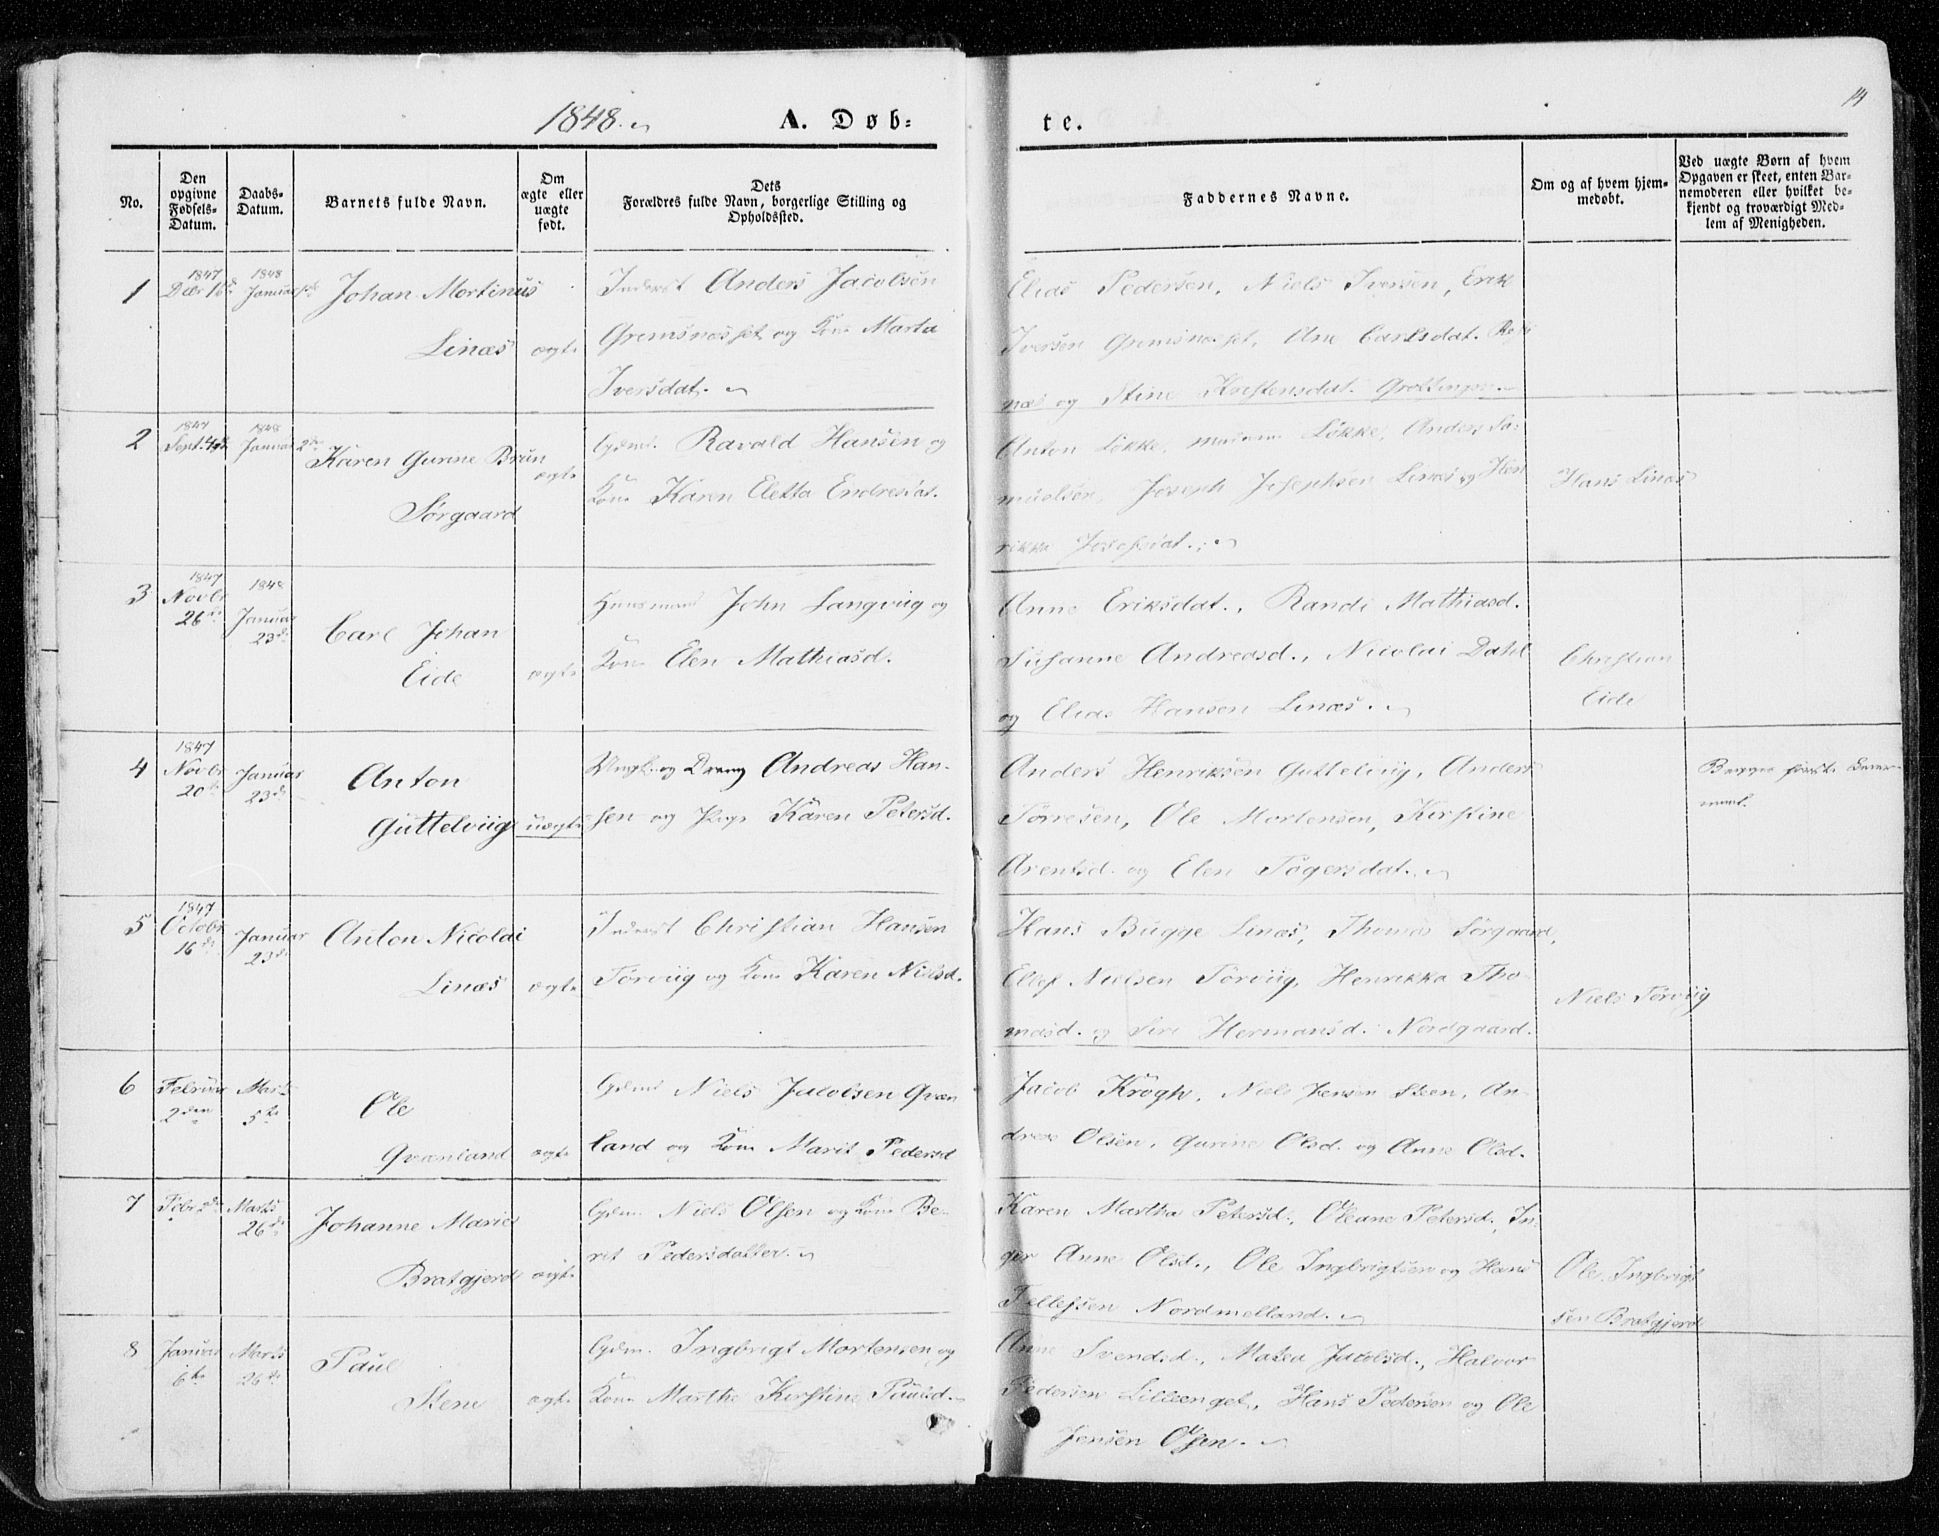 1848. A. Døb: te. 14
No.
Den opgivne Fødsels-Datum.
Daabs-Datum.
Barnets fulde Navn.
Om ægte eller uægte født.
Dets Forældres fulde Navn, borgerlige Stilling og Opholdssted.
Faddernes Navne.
Om og af hvem hjemmedøbt.
Ved uægte Børn af hvem Opgaven er skeet, enten Barnemoderen eller hvilket bekjendt og troværdigt Medlem af Menigheden.
1
1847
1848
Januar
Johan Martinus
Linæs
ægte
Inderst Anders Jacobsen
Gremsnæsset og Kone Marta
Iversdat.
Elias Pedersen, Niels Iversen, Erik
Iversen Gremsnæsset, Ane Carlsdat.
næs og Stine
2
1847
Sept.
1848
Januar 2den
Karen Gurine Brun
Sørgaard
ægte
Gdmd. Ravald Hansen og
Kone Karen Eletta Endresdat.
Anton Løkke, Løkke, Anders Sa-
muelsen, Joseph Josephsen Linæs og Hen
rikka Josefsdat.
Hans Linæs
3
1847
Novbr
26de
1848
Januar
23de
Carl Johan
Eide
ægte
Huusmand John Langviig og
Kone Elen Mathiasd.
Anne Eriksdat., Randi Mathiasd.
Susanne Andreasd., Nicolai Dahl
og Elias Hansen Linæs.
Christian
Eide
4
1847
Novbr
20de
Januar
23de
Anton
Guttelviig
uægte
Ungk. og Dreng Andreas Han-
sen og Pige Karen Petersd.
Anders Henriksen Guttelviig, Anders
Tørresen, Ole Mortensen, Kirstine
Arentsd. og Elen Tøgersdat.
Begges første Leier-
maal.
5
1847
Octobr
16de
Januar
23de
Anton Nicolai
Linæs
ægte
Inderst Christian Hansen
Tørviig og Kone Karen Nielsd.
Hans Bugge Linæs, Thomas Sørgaard,
Ellef Nielsen Tørviig, Henrikka Tho-
masd. og Siri Hermansd. Nordgaard.
Niels Tørviig
6
Februar
2den
Marts
5te
Ole
Qvænland
ægte
Gdmd Niels Jacobsen Qvæn
land og Kone Marit Pedersd
Jacob Krogh, Niels Jensen Steen, An-
dreas Olsen, Gurine Olsd. og Anne Olsd.
7
Febr 2den
Marts
26de
Johanne Marie
Bratgjerd
ægte
Gdm. Niels Olsen og Kone Be-
rit Pedersdatter.
Karen Martha Petersd., Oleane Petersd., In-
ger Anne Olsd., Ole Ingbrigtsen og Hans
Tellefsen Nordmelland.
Ole Ingbrigt
sen Bratgjerd
8
Januar
6te
Marts
26de
Paul
Stene
ægte
Gdm. Ingbrigt Mortensen og
Kone Marthe Kirstine Paulsd.
Anne Svendsd., Matea Jacobsd., Halvor
Pedersen Lilleenget, Hans Pedersen og Ole
Jensen Olsen.